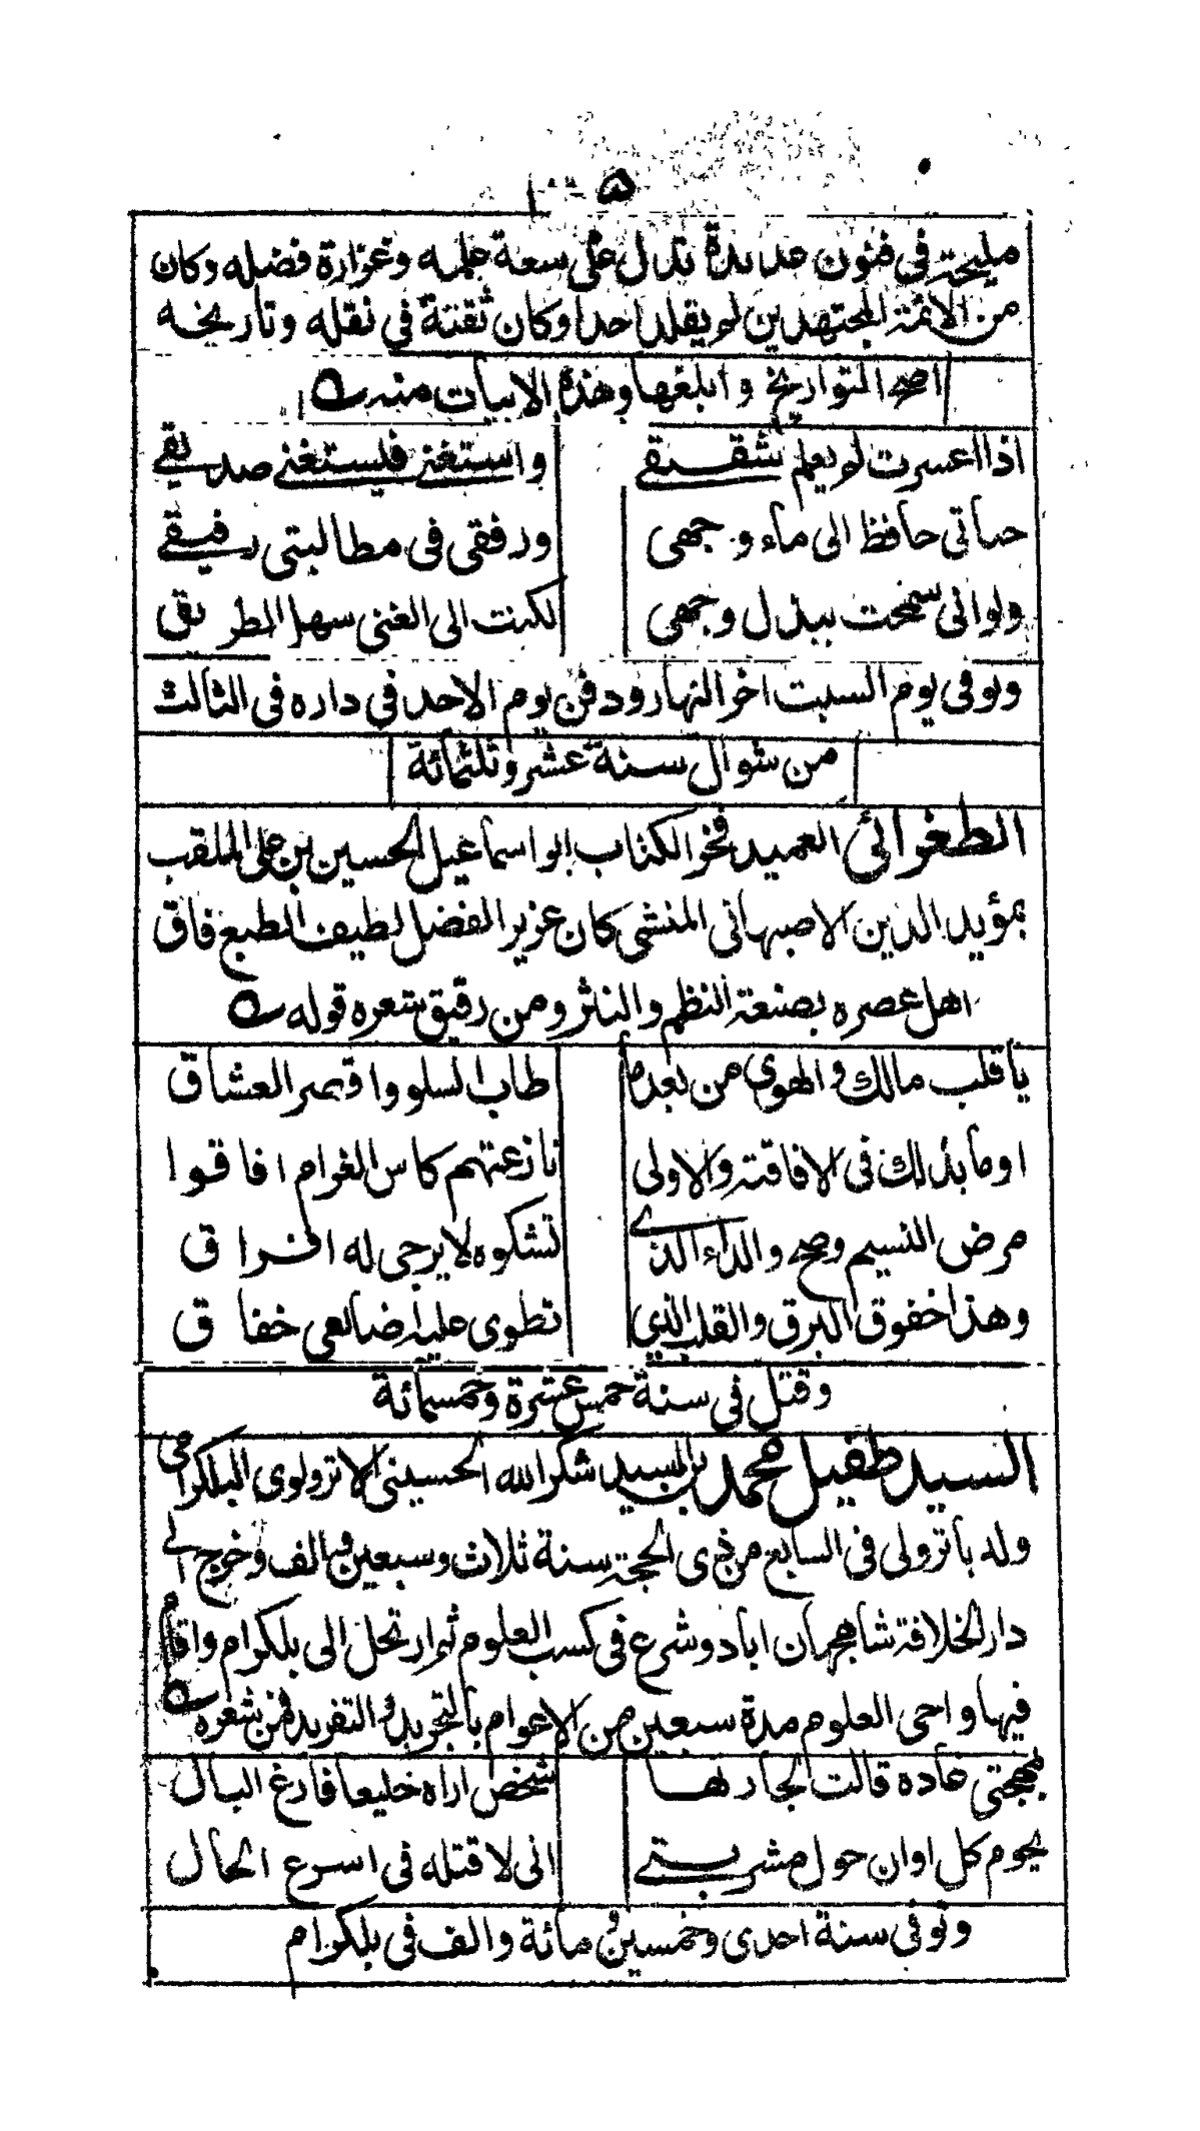 مليحة في فنون عديدة تدل على سعة علمه وغزارة فضله وكان
من الائمة المجتهدين لم يقلد احدا وكان ثقتة في نقله وتاريخه
اصح التواريخ وابلغها وهذه الابيات منه
اذا اعسرت لم يعلم شقيقي واستغنى فليستغنى صديقي
حياتي حافظ الى ماء وجهى ورفقى فى مطالبتى رفيقي
ولوانى سمحت ببذل وجهى لكنت الى الغنى سهل الطريق
وتوفى يوم السبت اخر النهار ودفن يوم الاحد في داره فى الثالث
من شوال سنة عشر وثلثمائة
الطغرائى العميد فخر الكتاب ابو اسماعيل الحسين بن على الملقب
بمؤيد الدين الاصبهانى المنشى كان عزير الفضل لطيف الطبع فاق
اهل عصره بصنعة النظم والنثر ومن رقيق شعره قوله
يا قلب مالك والهوى من بعد ما طاب السلو واقصر العشاق
اوما بدالك فى الافاقة والاولى نازعتهم كاس الغرام افاقوا
مرض النسيم وصح والداء الذى تشكوه لا يرجى له افراق
وهذا خفوق البرق والقلب الذي تطوى عليه اضالعى خفاق
وقتل في سنة خمس عشرة وخمسمائة
السيد طفيل محمد بن السيد شكر الله الحسينى الاترولوى البلكرامى
ولد باترولى فى السابع من ذى الحجة سنة ثلاث وسبعين والف وخرج الى
دار الخلافة شاهجهان اباد وشرع فى كسب العلوم ثم ارتحل الى بلكرام واقام
فيها واحى العلوم مدة سبعين من الاعوام بالتجريد والتفريد فمن شعره
بمهجتي غادة قالت لجار لها شخص اراه خليعا فارغ البال
يحوم كل اوان حول مشربتي انى لاقتله فى اسرع الحال
وتوفى سنة احدى وخمسين و مائة والف فى بلكرام